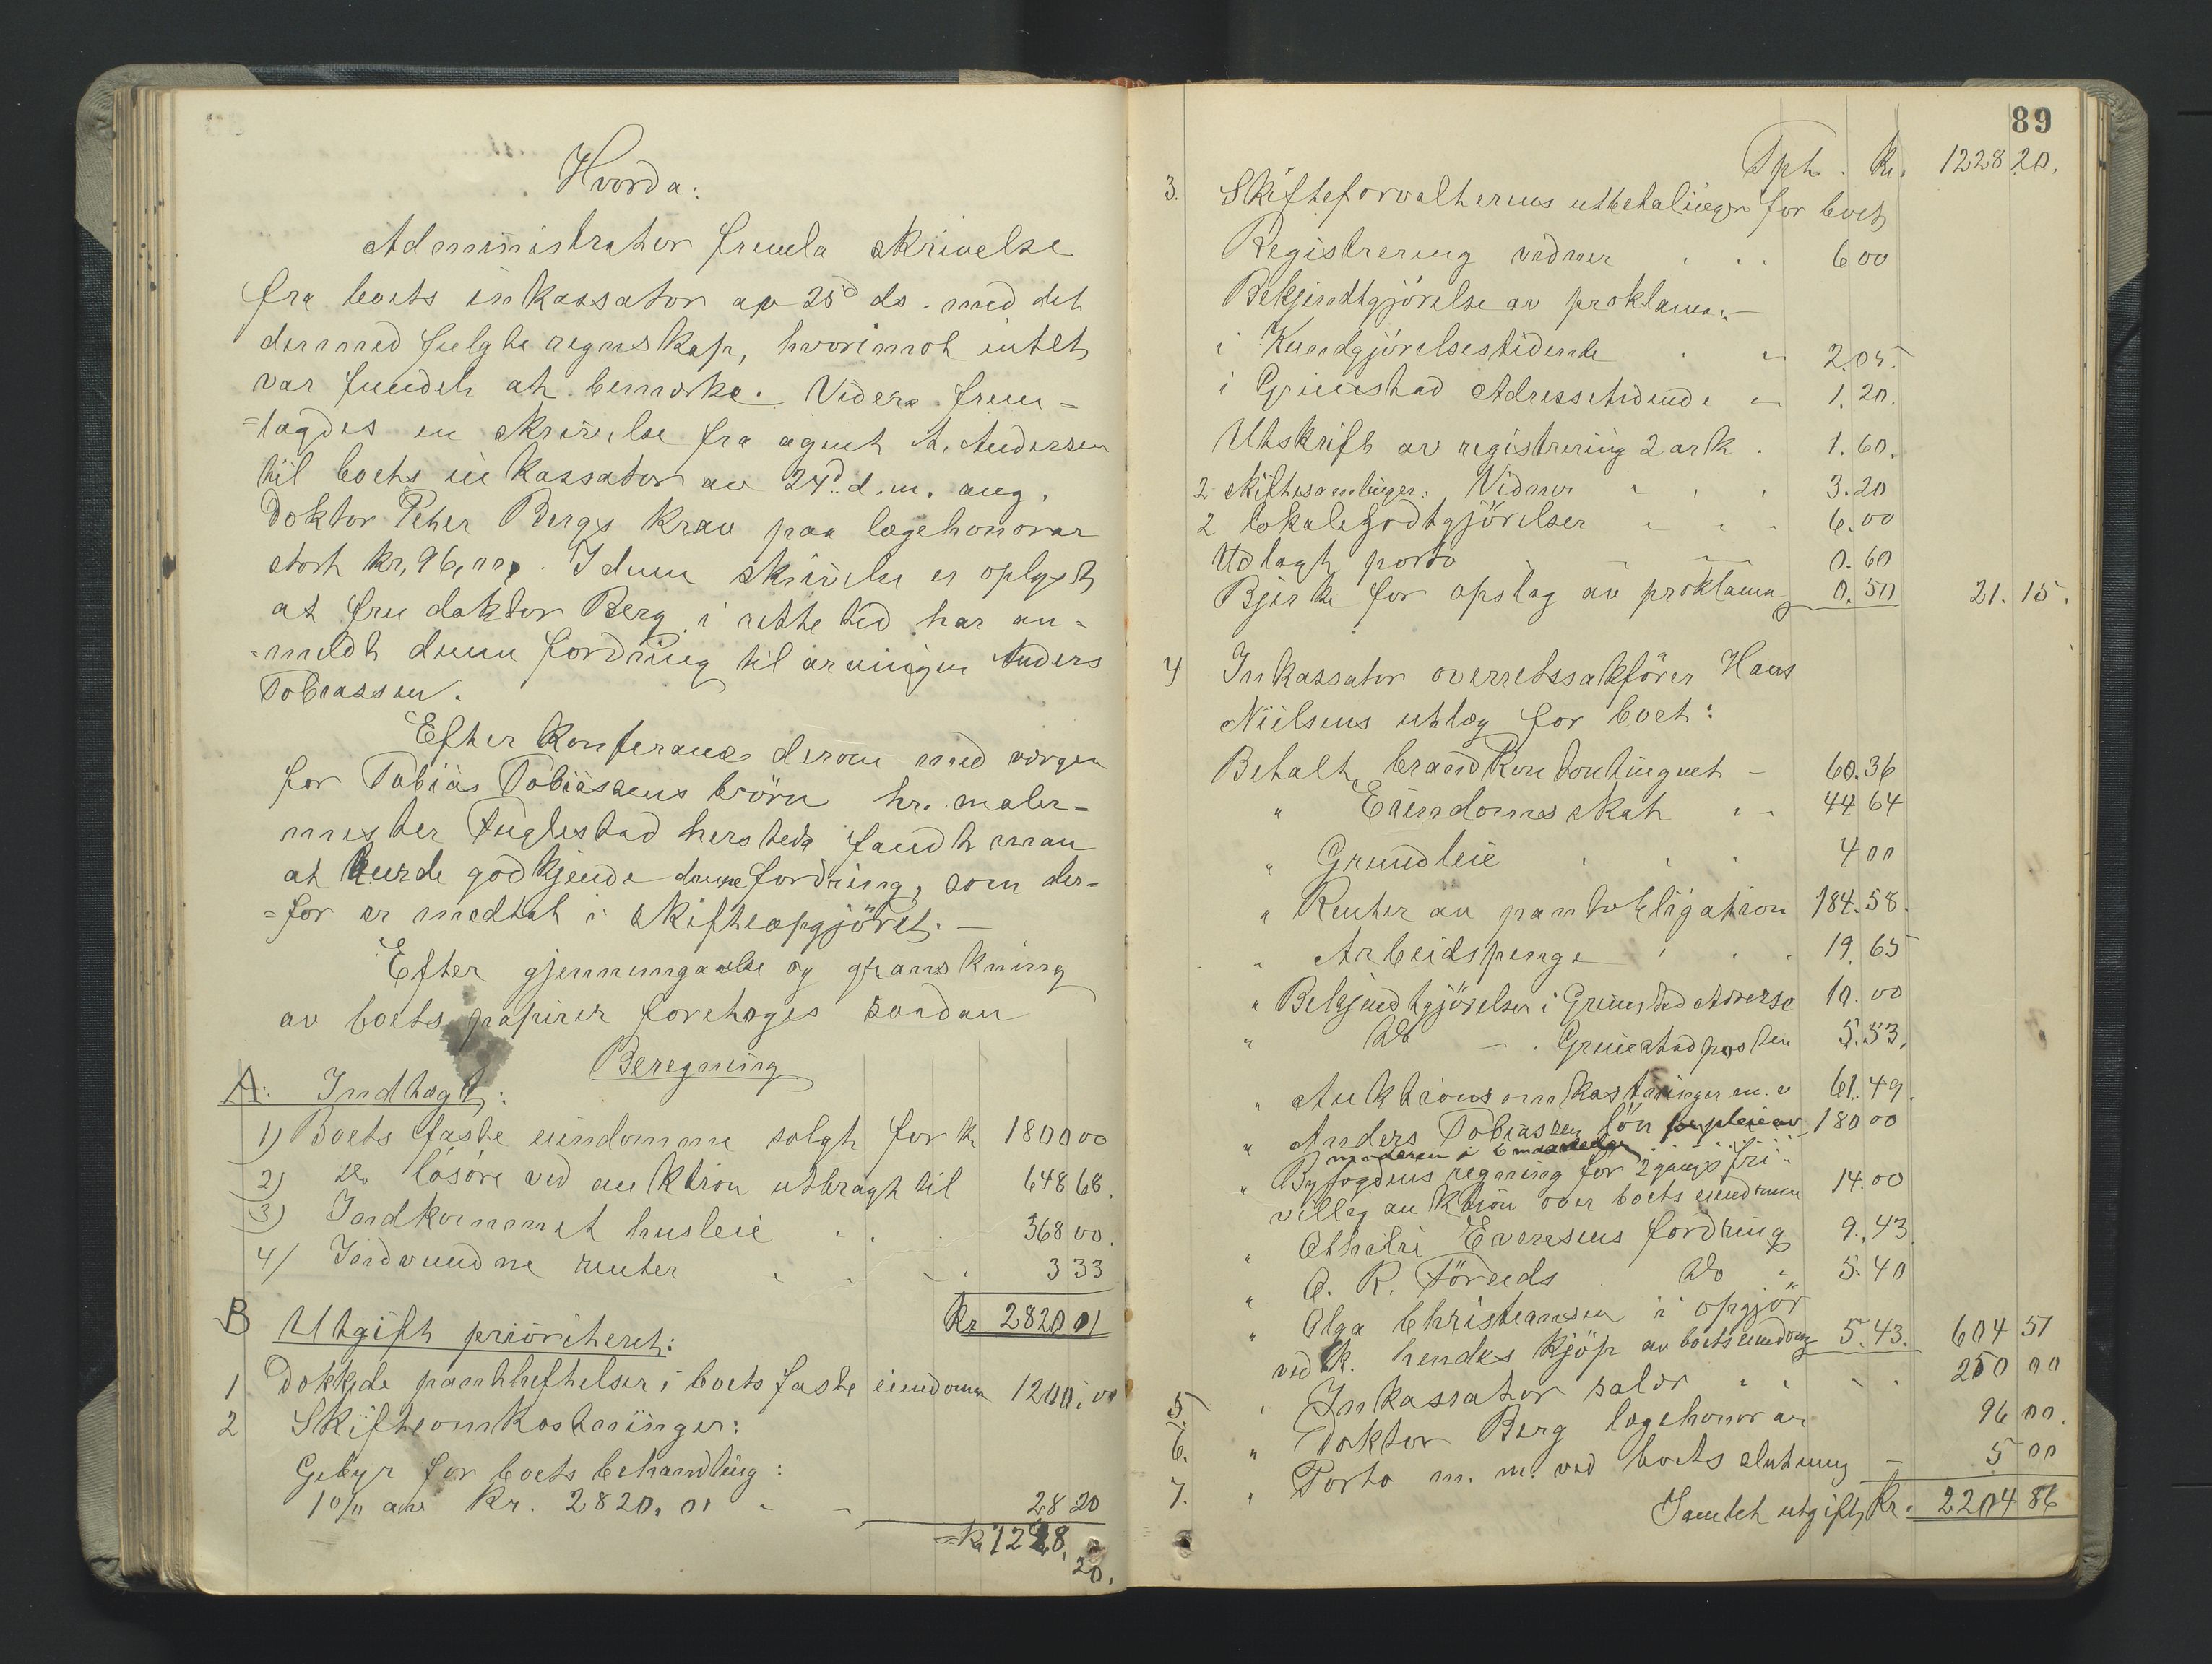 Hvorda:
Administrator fremla skrivelse
fra boets inkassator av 25d ds. med det
dermed fulgte regnskap, hvorimot intet
var fundet at bemerke. Videre frem=
=lagdes en skrivelse fra agent A. Andersen
til boets inkassator av 24d d.m. ang.
Doktor Peter Bergs krav paa lægehonorar
stort kr. 96,00. I denne skrivelse er oplyst
at fru doktor Berg i rette tid har an=
=meldt denne fordring til arvingen Anders
Tobiassen.
Efter konferance derom med vergen
for Tobias Tobiassens börn hr. maler=
mester Fuglestad hersteds fandt man
at burde godkjende denne fordring, som der=
=for er medtat i skifteopgjöret. —
Efter gjennemgaaelse og granskning
av boets papirer foretoges saadan
Beregning
A. Indtægt:
1) Boets faste eiendomme solgt for kr 1800 00
2) Do lösöre ved auktion utbragt til 648 68.
3) Indkommet husleie 368 00.
4) Indvundne renter 3 33
Kr 2820 01
B Utgift prioritert:
1 Dækkede panthæftelser i boets faste eiendomme 1200.00
2 Skifteomkostninger:
Gebyr for boets behandling:
1 0/0 av Kr. 2820.01 28 20
Kr 1228.20.
89
Tpt. Kr. 1228 20.
3. Skifteforvalterens utbetalinger for boet
Registrering vidner 6 00
Bekjendtgjörelse av proklama:—
i Kundgjörelsestidende 2.05.
i Grimstad Adressetidende 1.20.
Utskrift av registrering 2 ark. 1.60.
2 skiftesamlinger: Vidner 3.20
2 lokalegodtgjörelser 6.00
Utlagt porto 0.60
Bjerke for opslag av proklama 0.50 21.15.
4 Inkassator overretssakförer Hans
Nielsens utlæg for boet:
Betalt brandkontontingent — 60.36
" Eiendomsskat 44 64
" Grundleie 4 00
" Renter av pantobligation 184.58.
" Arbeidspenge 19.65
" Bekjendtgjörelser i Grimstad Adresse 10.00
" Do — . Grimstadposten 5.53.
" Auktionsomkostninger m.v 61.49.
" Anders Tobiassen lön for pleie av 180 00
moderen i 6 maaneder
" Byfogdens regning for 2 gangs fri=
villig auktion over boets eiendomme 14.00
" Othilie Evensens fordring 9.43.
" O. R. Förends Do " 5.40
" Olga Christiansen i opgjör
ved K. hendes kjöp av boets eiendom 5.43. 604 51
5. " Inkassator salær 250 00
6. " Doktor Berg lægehonorar 96 00.
7. " Porto m. m. ved boets slutning — 5 00
Samlet utgift Kr. 2204 86